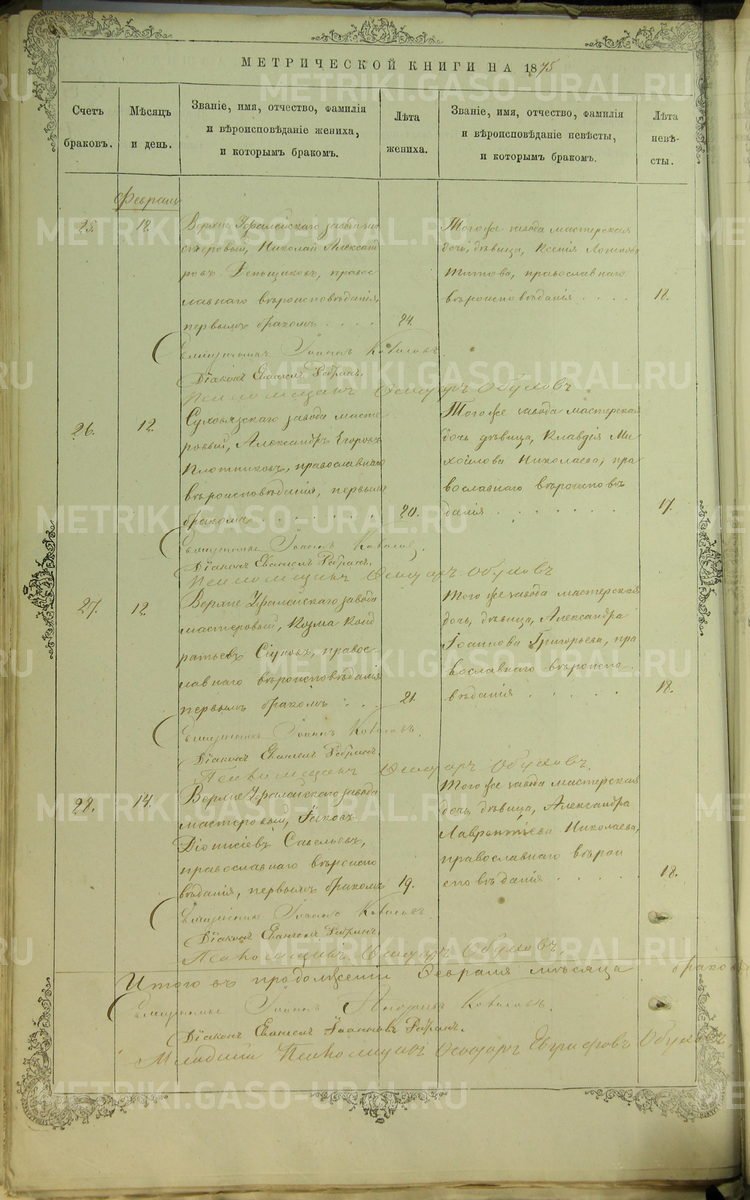 МЕТРИЧЕСКОЙ КНИГИ НА 1875
Счетъ браковъ.
Мѣсяцъ и день.
Званіе, имя, отчество, фамилія
и вѣроисповѣданіе жениха,
и которымъ бракомъ.
Лѣта жениха.
Званіе, имя, отчество, фамилія
и вѣроисповѣданіе невѣсты,
и которымъ бракомъ.
Лѣта невѣсты.
Февраль
25. 12.
Верхне Уфалейскаго завода ма
стеровый, Николай Александ
ровъ, правос
лавнаго вѣроисповѣданія,
первымъ бракомъ 24.
Тогоже завода мастерская
дочь, дѣвица, Ксенія
Титова, православнаго
вѣроисповѣданія 18.
Священникъ Іоаннъ
Діаконъ Евгеній
Псаломщикъ Обуховъ
26. 12.
Суховязскаго завода масте
ровый, Александръ Егоровъ
Плотниковъ, православнаго
вѣроисповѣданія, первымъ
бракомъ 20.
Тогоже завода мастерская
дочь дѣвица, Клавдія Ми
хайлова Николаева, пра
вославнаго вѣроисповѣ
данія 17.
Священникъ Іоаннъ
Діаконъ Евгеній
Псаломщикъ Обуховъ
27. 12.
Верхне Уфалейскаго завода
мастеровый, Козма Конд
ратьевъ, правос
лавнаго вѣроисповѣданія
первымъ бракомъ 21.
Тогоже завода мастерская
дочь, дѣвица, Александра
Іоаннова Григорьева, пра
вославнаго вѣроиспо
вѣданія 18.
Священникъ Іоаннъ
Діаконъ Евгеній
Псаломщикъ Обуховъ
28. 14.
Верхне Уфалейскаго завода
мастеровый, Іаковъ
Діонисіевъ Савельевъ,
православнаго вѣроиспо
вѣданія, первымъ бракомъ 19.
Тогоже завода мастерская
дочь, дѣвица, Александра
Лаврентьева Николаева,
православнаго вѣрои
сповѣданія 18.
Священникъ Іоаннъ
Діаконъ Евгеній
Псаломщикъ Обуховъ
Итого въ продолженіи Февраля мѣсяца браковъ
Священникъ Іоаннъ
Діаконъ Евгеній Іоанновъ
Младшій Псаломщикъ Обуховъ
METRIKI.GASO-URAL.RU